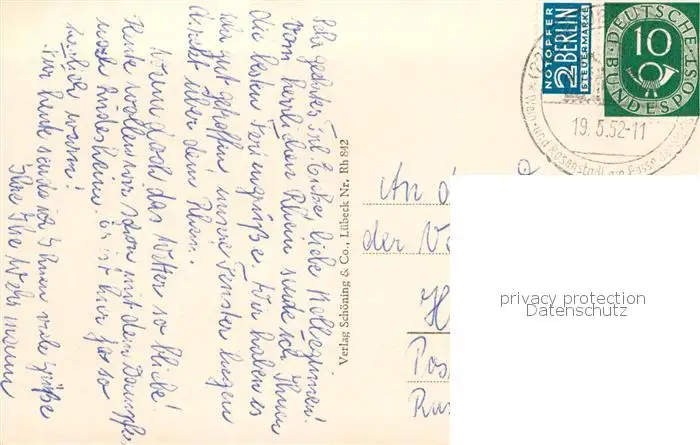 Sehr geehrtes Frl. Erika, liebe Kolleginnen!
Vom herrlichen Rhein sende ich Ihnen
die besten Feriengrüße. Wir haben es
sehr gut getroffen! unsere Fenster liegen
direkt über dem Rhein.
Wenn doch das Wetter so bliebe!
Heute wollen wir schon mit dem Dampfer
nach Rüdesheim. Es ist hier ja so
herrlich warm!
Für heute sende ich Ihnen viele Grüße
Ihre
Verlag Schöning & Co., Lübeck Nr. Rh 842
NOTOPFER
2 BERLIN
STEUERMARKE
DEUTSCHE
10
BUNDESPOST
19.5.52-11
Wein- und Rosenstadt
An
der
privacy protection
Datenschutz